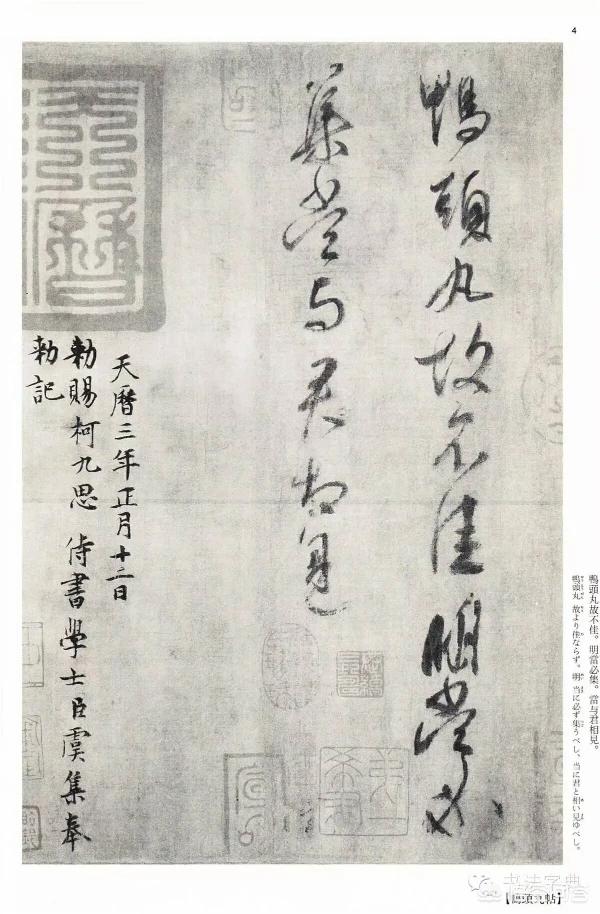 4
鴨頭丸故不佳明當必
集當与君相見
天曆
天曆三年正月十二日
勑賜柯九思侍書學士臣虞集奉
勑記
鴨頭丸故不佳。明當必集。當与君相見。
鴨頭丸 故より佳ならず。明 当に必ず集うべし、当に君と相い見ゆべし。
【鴨頭丸帖】
书法字典